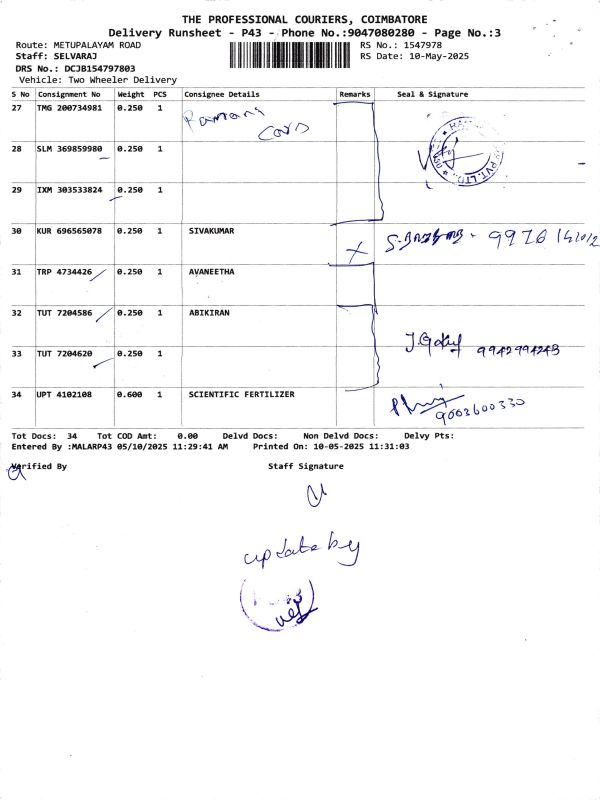 THE PROFESSIONAL COURIERS, COIMBATORE
Delivery Runsheet - P43 - Phone No.:9047080280 - Page No.:3
Route: METUPALAYAM ROAD RS No.: 1547978
Staff: SELVARAJ RS Date: 10-May-2025
DRS No.: DCJB154797803
Vehicle: Two Wheeler Delivery
S No Consignment No Weight PCS Consignee Details Remarks Seal & Signature
27 TMG 200734981 0.250 1 Ramani Cars
28 SLM 369859980 0.250 1
29 IXM 303533824 0.250 1
30 KUR 696565078 0.250 1 SIVAKUMAR
31 TRP 4734426 0.250 1 AVANEETHA
32 TUT 7204586 0.250 1 ABIKIRAN
33 TUT 7204620 0.250 1 9942994243
34 UPT 4102108 0.600 1 SCIENTIFIC FERTILIZER 9003600330
Tot Docs: 34 Tot COD Amt: 0.00 Delvd Docs: Non Delvd Docs: Delvy Pts:
Entered By :MALARP43 05/10/2025 11:29:41 AM Printed On: 10-05-2025 11:31:03
Verified By Staff Signature
update by